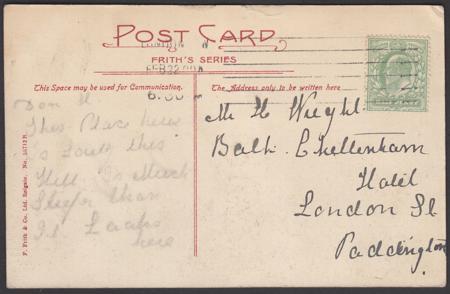 POST CARD
FRITH'S SERIES
LONDON W
FEB 22
This Space may be used for Communication.
The Address only to be written here
6.30
This Place here
is Down this
Hill is Much
than
It Looks
here
Mr H Wright
Bath Cheltenham
Hotel
London St
Paddington
F. Frith & Co. Ltd. Reigate. No.